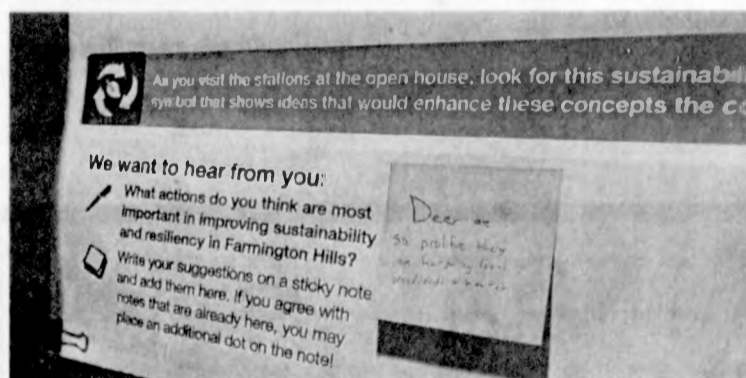 As you visit the stations at the open house, look for this sustainab
symbol that shows ideas that would enhance these concepts the c
We want to hear from you:
What actions do you think are most
important in improving sustainability
and resiliency in Farmington Hills?
Write your suggestions on a sticky note
and add them here. If you agree with
notes that are already here, you may
place an additional dot on the note!
Deer are
so they